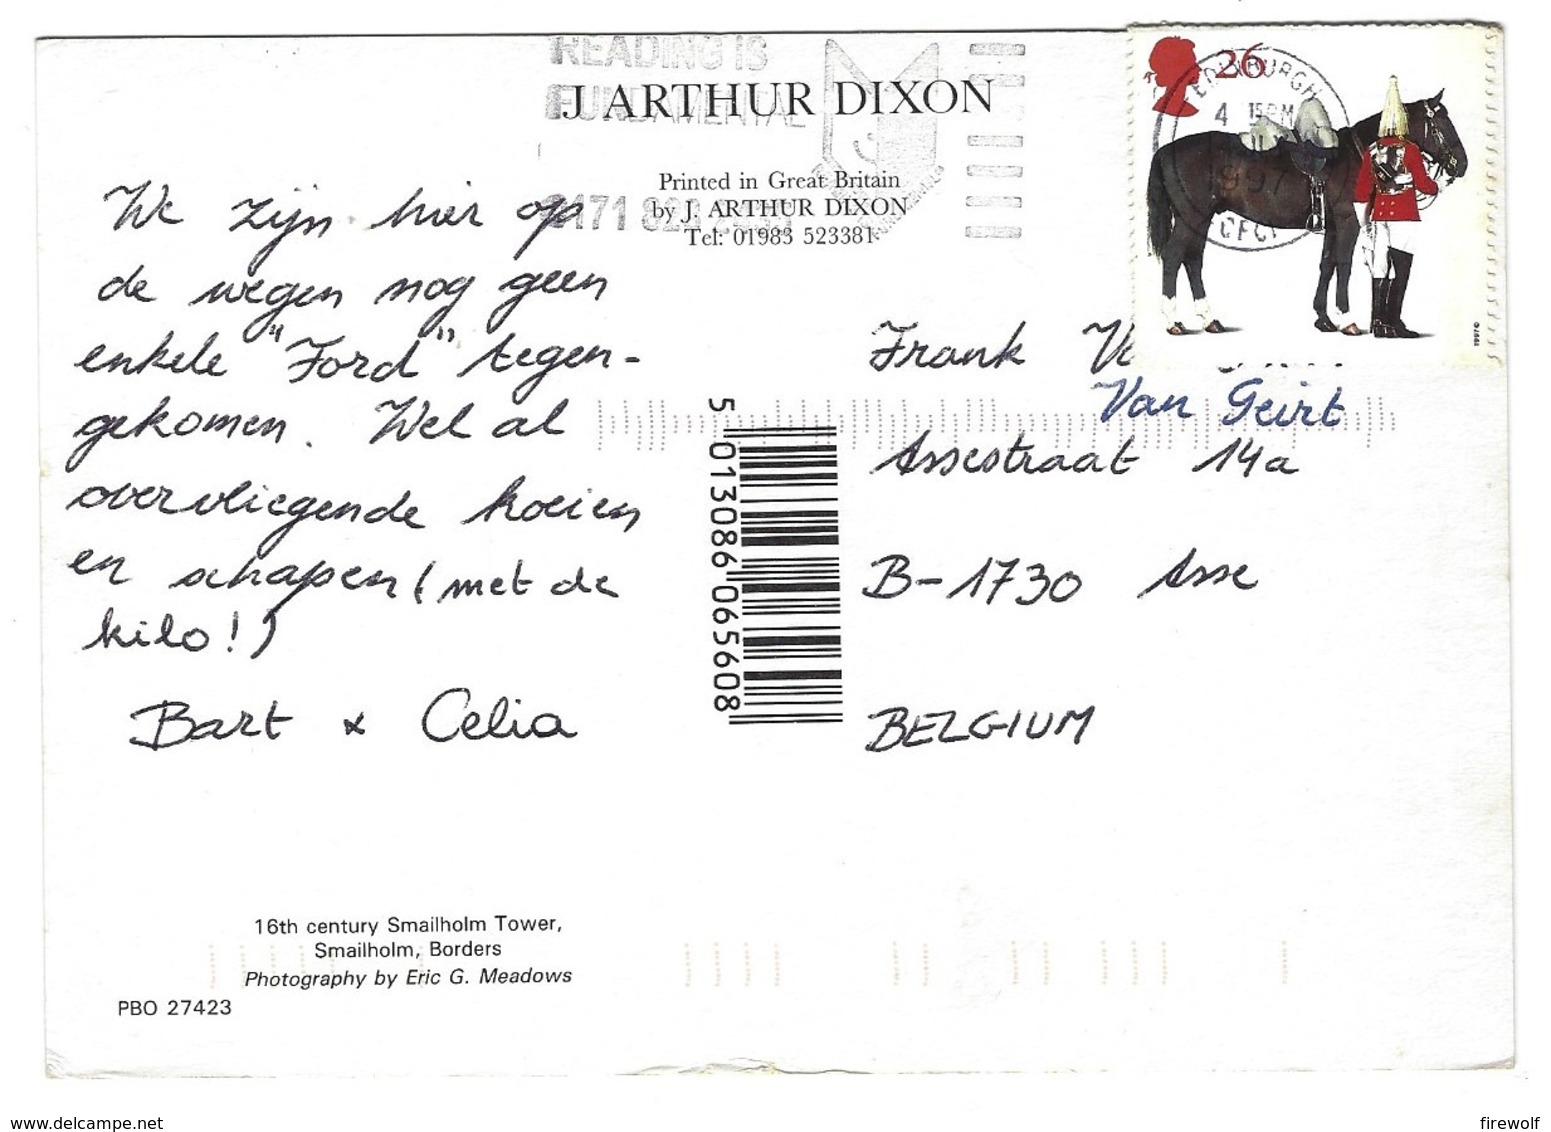 READING IS
FUNDAMENTAL
J ARTHUR DIXON
Printed in Great Britain
by J. ARTHUR DIXON
Tel: 01983 523381
26
EDINBURGH
4
1997
©1997
We zijn hier op
de wegen nog geen
enkele "Ford" tegen-
gekomen. Wel al
overvliegende koeien
en schapen (met de
kilo!)
Bart & Celia
Frank
Van Geirt
Assestraat 14a
B-1730 Asse
BELGIUM
5 013086 065608
16th century Smailholm Tower,
Smailholm, Borders
Photography by Eric G. Meadows
PBO 27423
www.delcampe.net
firewolf